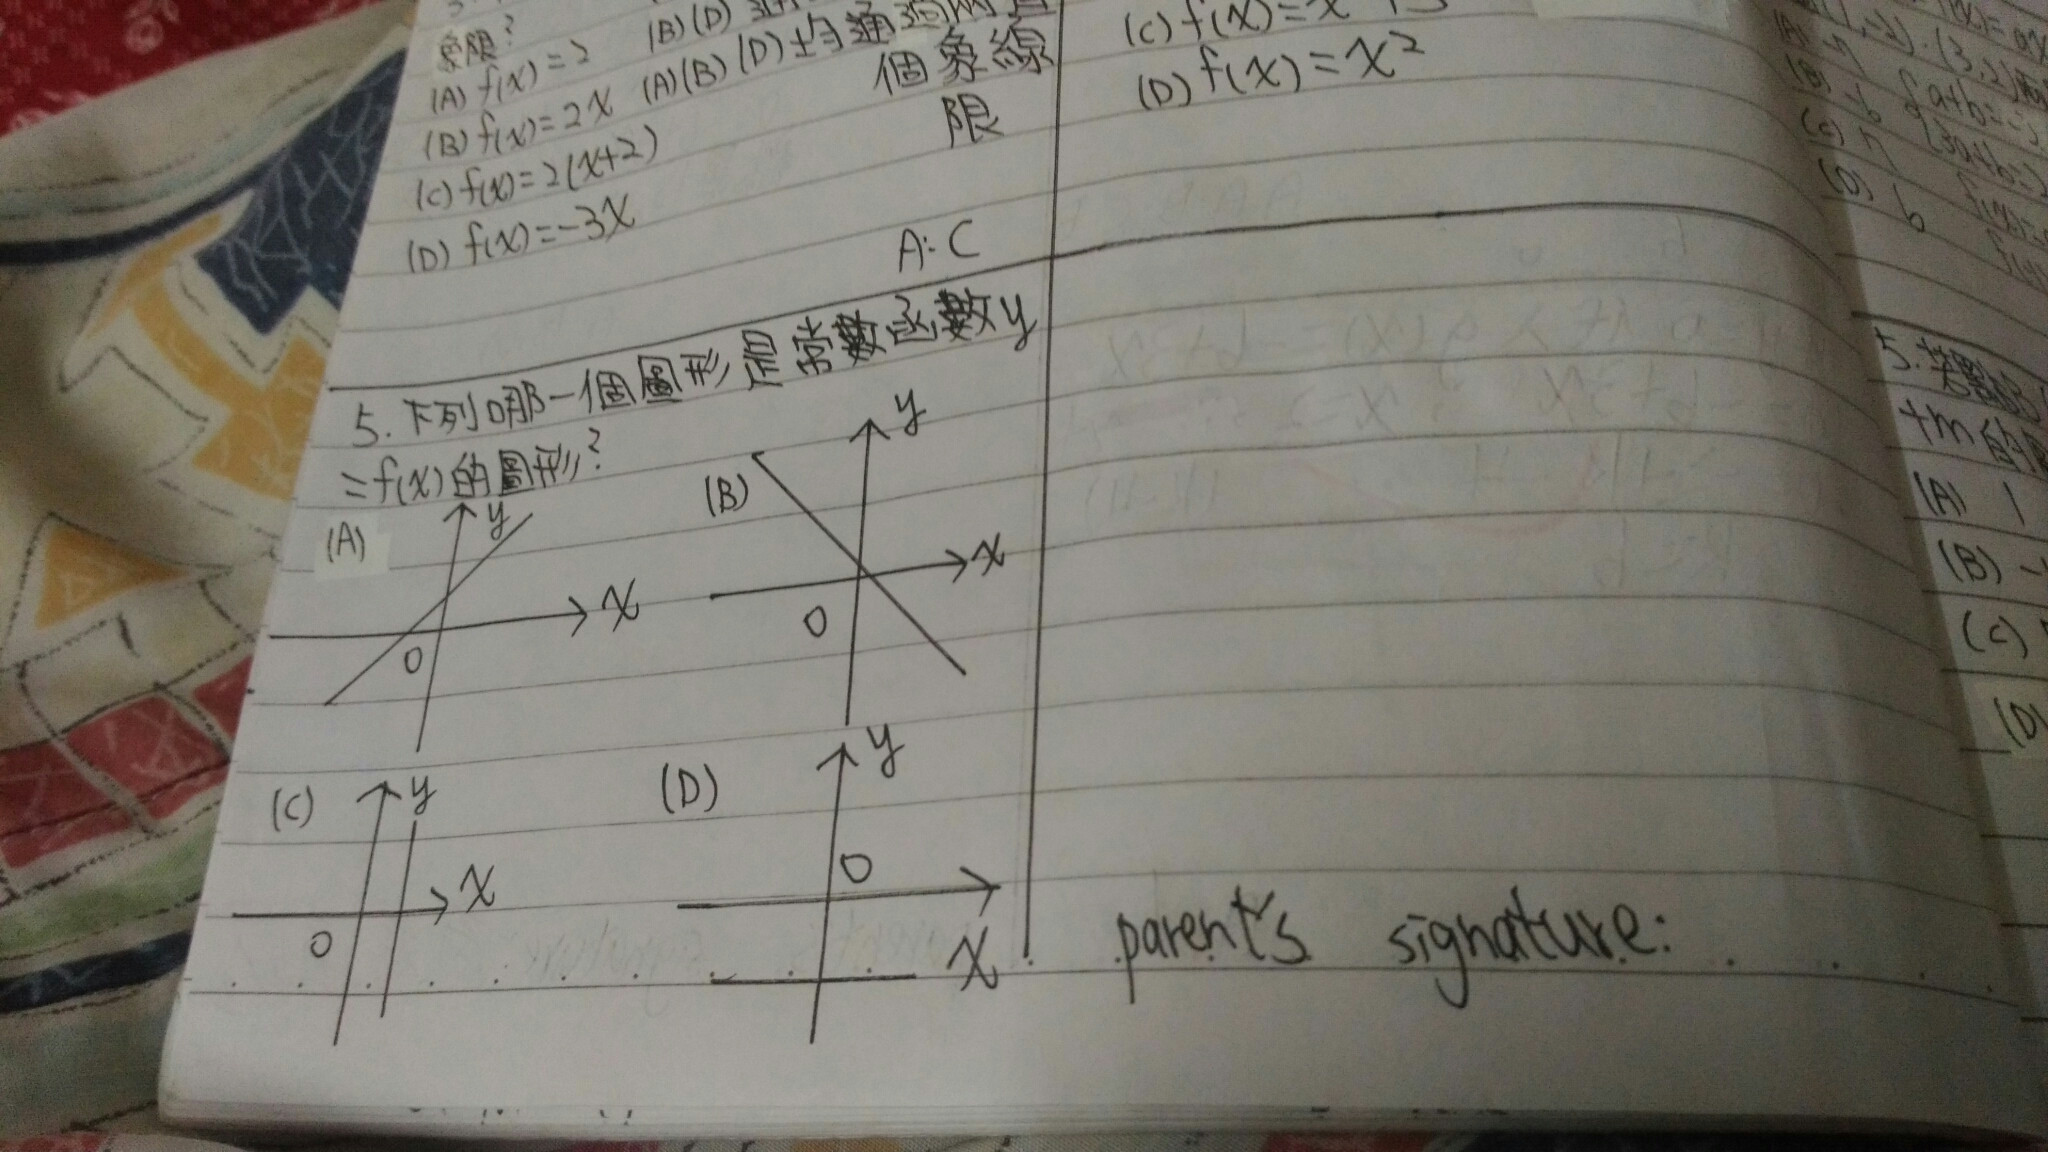 象限?
(A) f(x)=2
(B) f(x)=2x
(C) f(x)=2(x+2)
(D) f(x)=-3x
(B)(D)
(A)(B)(D)均通過兩
個象線
限
A:C
5.下列哪一個圖形是常數函數y
=f(x)的圖形?
(A)
y
x
0
(B)
y
x
0
(C)
y
x
0
(D)
y
0
x
(C) f(x)=x
(D) f(x)=x²
parent's signature:
(3,2)
(B) -6
(C) 7
(D) 6
a+b=
3a+b=2
5.
+m的
(A) 1
(B) -
(C)
(D)